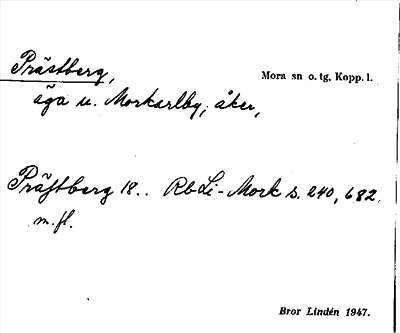 Prästberg,
Mora sn o. tg, Kopp. l.
äga u. Morkarlby; åker,
Präſtberg 18.. Rb Li - Mork s. 240, 682.
m. fl.
Bror Lindén 1947.